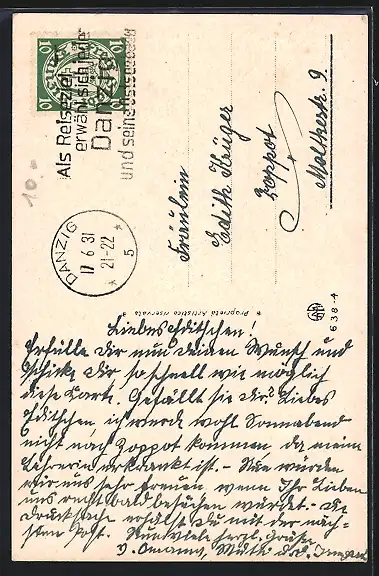 10
DANZIG
10
Als Reiseziel
erwähl' sich jeder
Danzig
und seine Ostseebäder
10.-
DANZIG
17 6 31
21-22
* 5 *
Fräulein
Edith Krüger
Zoppot
Moltkestr. 9
* Proprietà Artistica riservata *
638-4
Liebes Edithchen!
Erfülle Dir nun deinen Wunsch und
schicke Dir so schnell wie möglich
diese Karte. Gefällt sie Dir? Liebes
Edithchen, ich werde wohl Sonnabend
nicht nach Zoppot kommen, da meine
Lehrerin erkrankt ist. - Nun würden
wir uns sehr freuen wenn Ihr Lieben
uns recht bald besuchen würdet. - Die
Drucksache erhälst Du mit der näch-
sten Post. Nun viele herzl. Grüße
v. Omama, Mutti u.